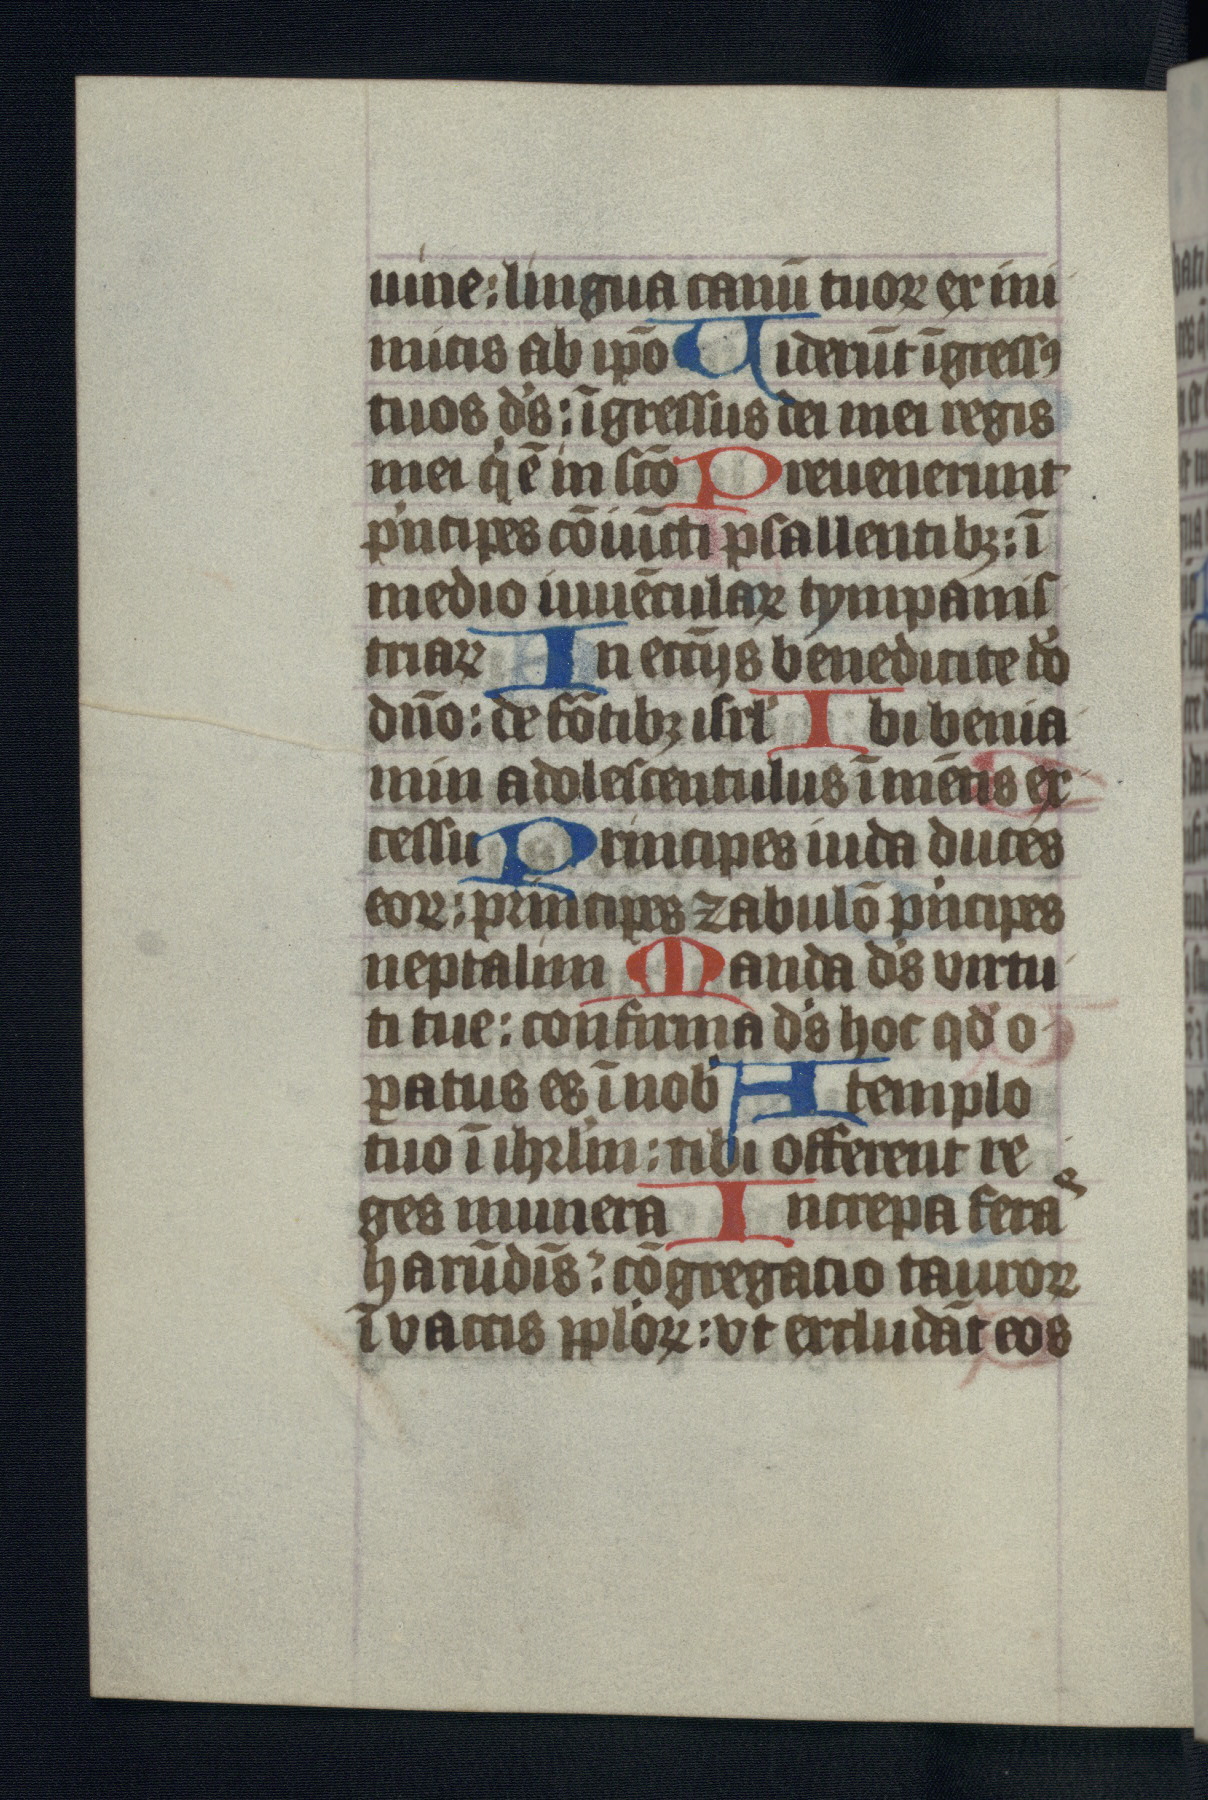 uine: lingua canū tuoꝝ ex ini
micis ab ip̄o Uiderūt īgressꝰ
tuos d's: īgressus dei mei regis
mei q' ē in sc̄o Preuenerunt
p'ncipes cōiūcti psallentibꝫ: ī
medio iuuēculaꝝ tympanis
triaꝝ In ecc̄ijs benedicite do
dn̄o: de fōtibꝫ isrl' Ibi benia
min adolescentulus ī mētis ex
cessu Principes iuda duces
eoꝝ: principes zabulō p'ncipes
neptalim Manda d's virtu
ti tue: confirma d's hoc qd' o
ꝑatus es ī nob' A templo
tuo ī ihrlm̄: tibi offerent re
ges munera Increpa feras
harūdīs: cōgregatio tauroꝝ
ī vaccis pp̄loꝝ: vt excludāt eos